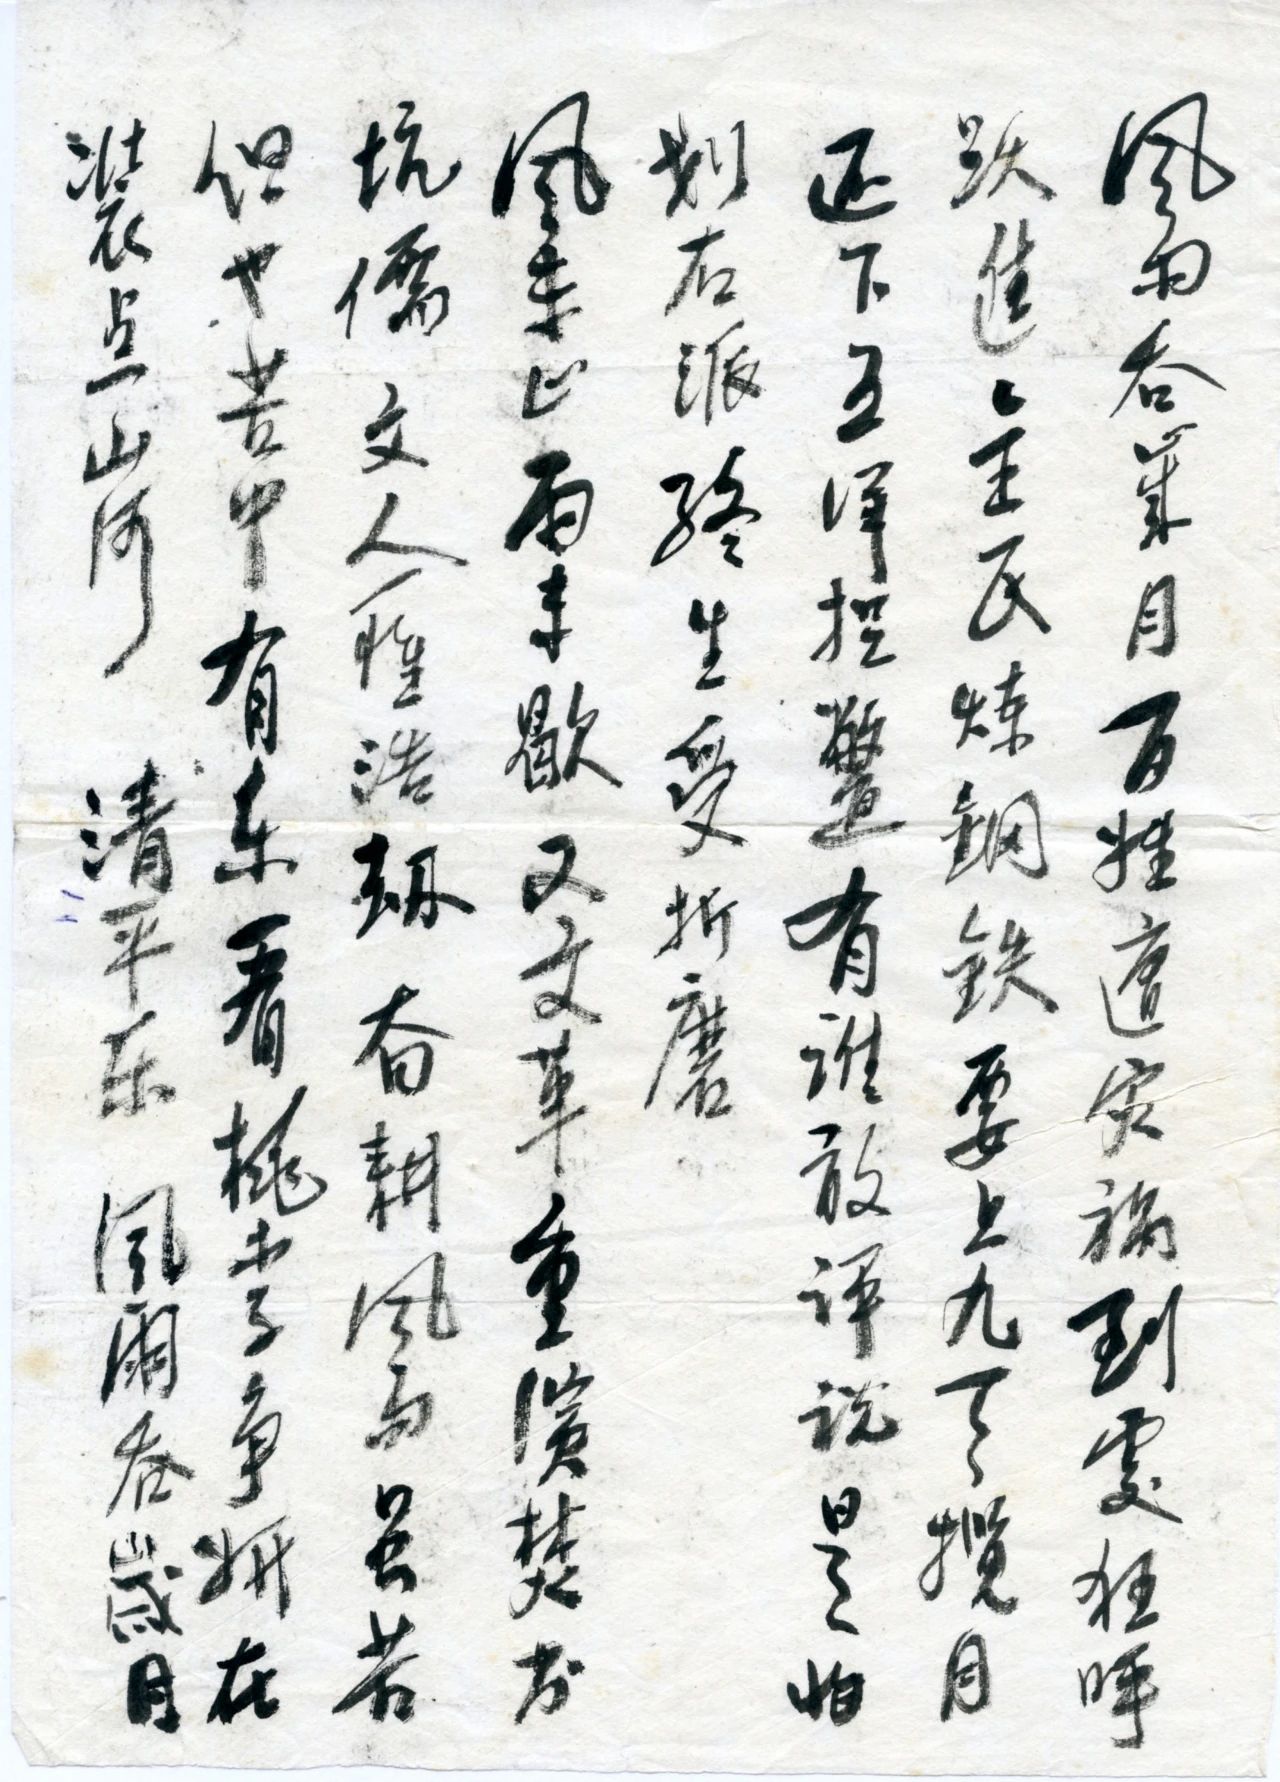 风雨吞岁月百姓遭灾祸到处狂呼
跃进全民炼钢铁要上九天揽月
还下五洋捉鳖有谁敢评说是怕
划右派终生受折磨
风未止雨未歇又文革重演焚书
坑儒文人罹浩劫奋耕风雨虽苦
但也苦中有乐看桃李争妍在
装点山河 清平乐 风雨吞岁月